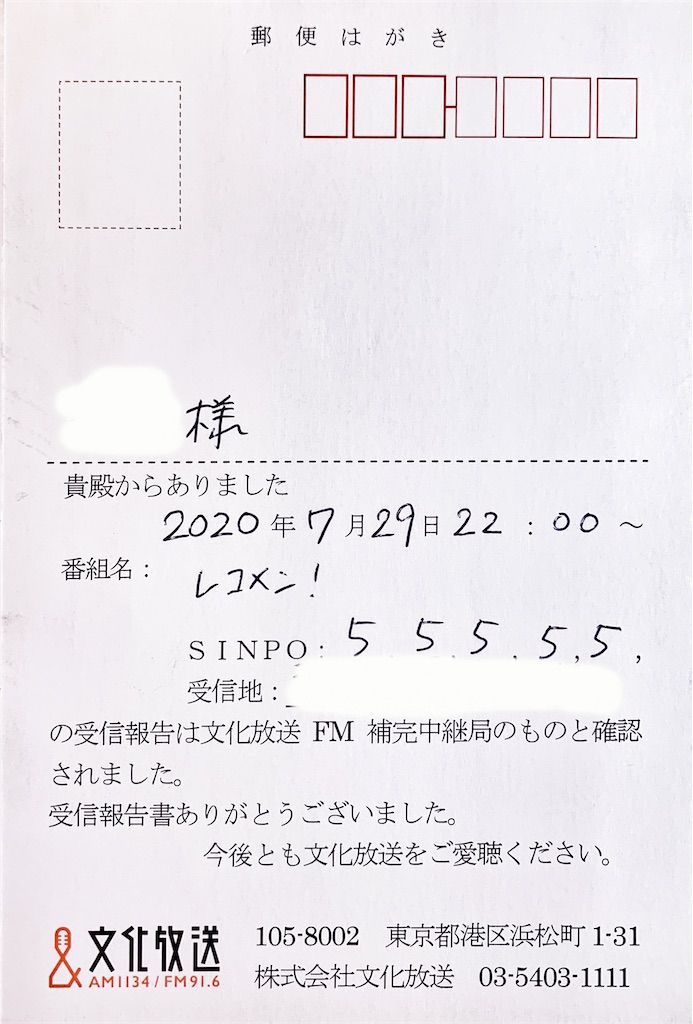 郵便はがき
様
貴殿からありました
2020年7月29日22:00～
番組名：
レコメン!
SINPO：5 5 5 5 5,
受信地：
の受信報告は文化放送 FM 補完中継局のものと確認
されました。
受信報告書ありがとうございました。
今後とも文化放送をご愛聴ください。
文化放送
AM1134/FM91.6
105-8002 東京都港区浜松町 1-31
株式会社文化放送 03-5403-1111